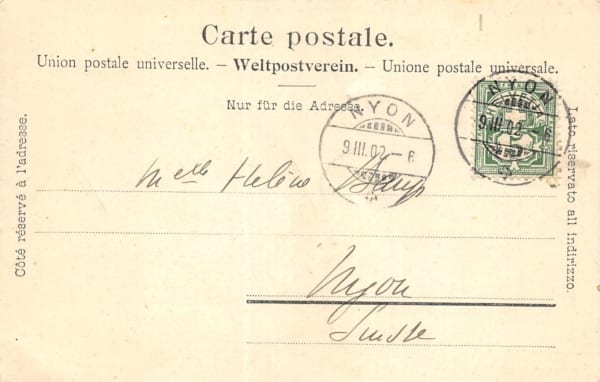 Carte postale.
Union postale universelle. – Weltpostverein. – Unione postale universale.
Nur für die Adresse.
NYON
9 III.02.– 6
NYON
9 III.02 – 6
Côté réservé à l'adresse.
Lato riservato all indirizzo.
Melle Hélène
Nyon
Suisse